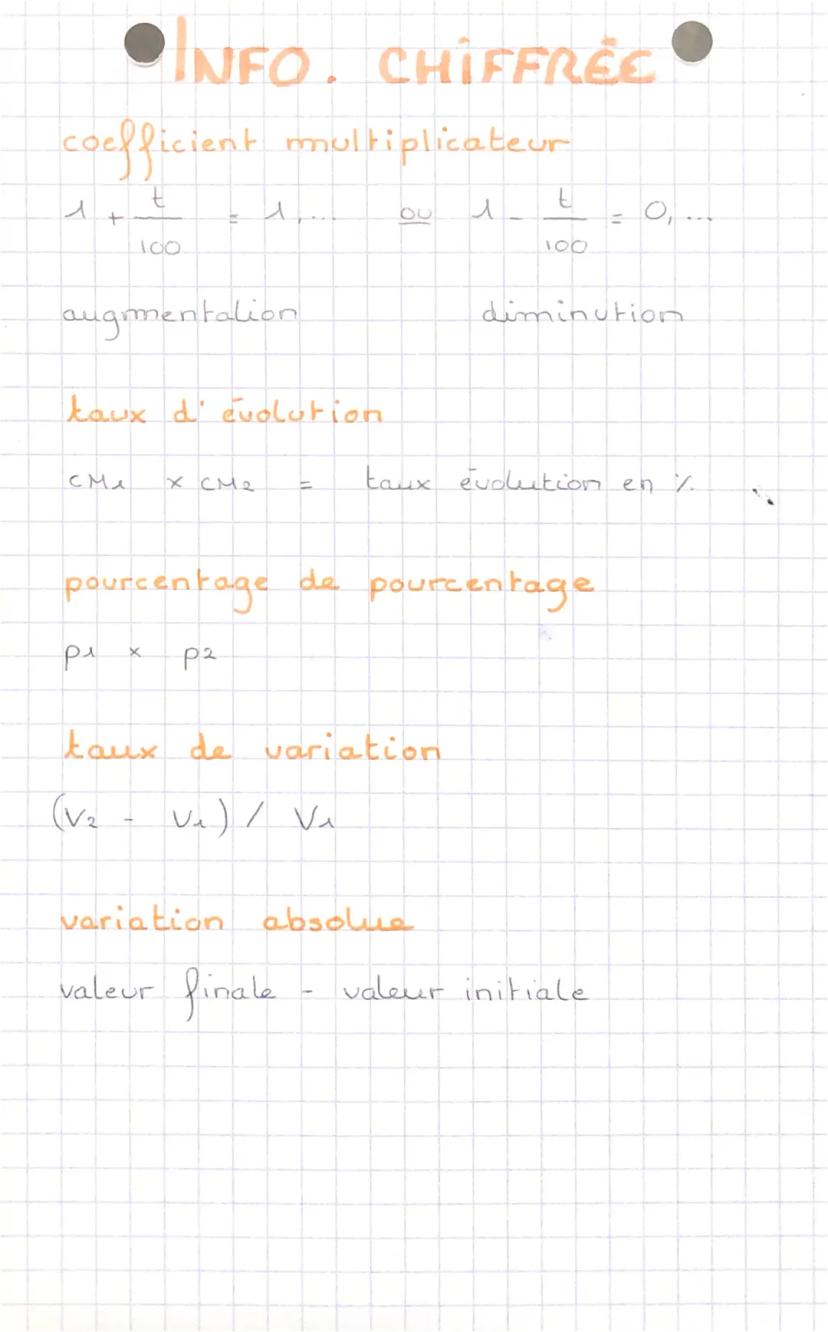 INFO. CHIFFRÉE
coefficient multiplicateur
1 + t/100 = 1,... ou 1 - t/100 = 0,...
augmentation diminution
taux d'évolution
CM1 x CM2 = taux évolution en %
pourcentage de pourcentage
p1 x p2
taux de variation
(V2 - V1) / V1
variation absolue
valeur finale - valeur initiale